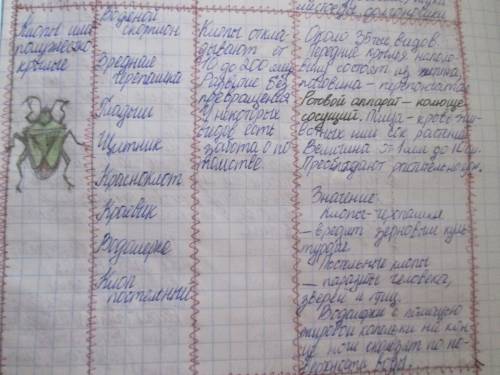 Клопы или
полужестко
крылые
Водяной
скорпион
Вредная
черепашка
Гладыш
Щитник
Красноклоп
Краевик
Водомерка
Клоп
постельный
Клопы откла
дывают от
10 до 200 яиц
Развитие без
превращения
У некоторых
видов есть
забота о по-
томстве.
Около 35 тыс видов.
Передние крылья наполо
вину состоят из хитина,
половина - перепончатая
Ротовой аппарат - колюще-
сосущий. Пища - кровь жи-
вотных или сок растений.
Величина от 1 мм до 10 см.
Преобладают растительнояд.
Значение:
Клопы-черепашки
- вредит зерновым куль
турам.
Постельные клопы
- паразиты человека,
зверей и птиц.
Водомерки с помощью
жировой капельки на кон-
це ноги скользят по по-
верхности воды.